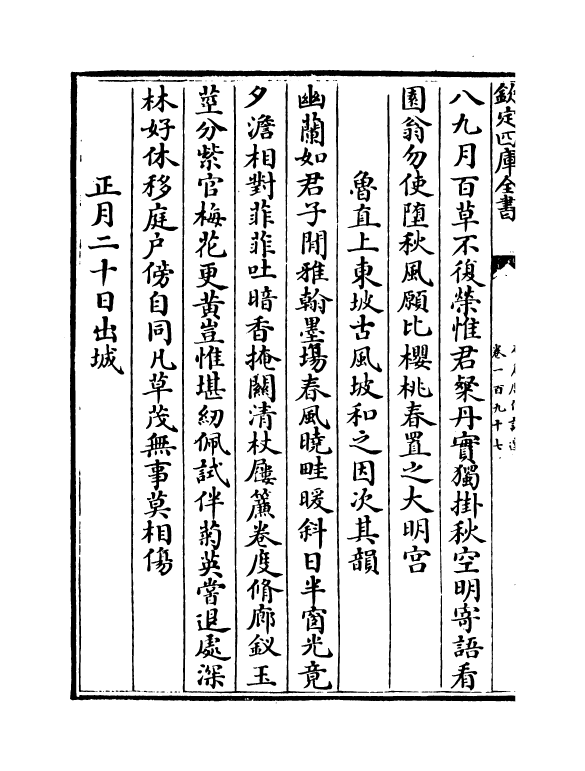 欽定四庫全書
卷一百九十七
八九月百草不復榮惟君粲丹實獨掛秋空明寄語看
園翁勿使墮秋風願比櫻桃春置之大明宫
魯直上東坡古風坡和之因次其韻
幽蘭如君子閒雅翰墨塲春風曉畦暖斜日半窗光竟
夕澹相對菲菲吐暗香掩關清杖屨簾卷度脩廊釵玉
莖分紫官梅花更黄豈惟堪紉佩試伴菊英嘗退處深
林好休移庭户傍自同凡草茂無事莫相傷
正月二十日出城